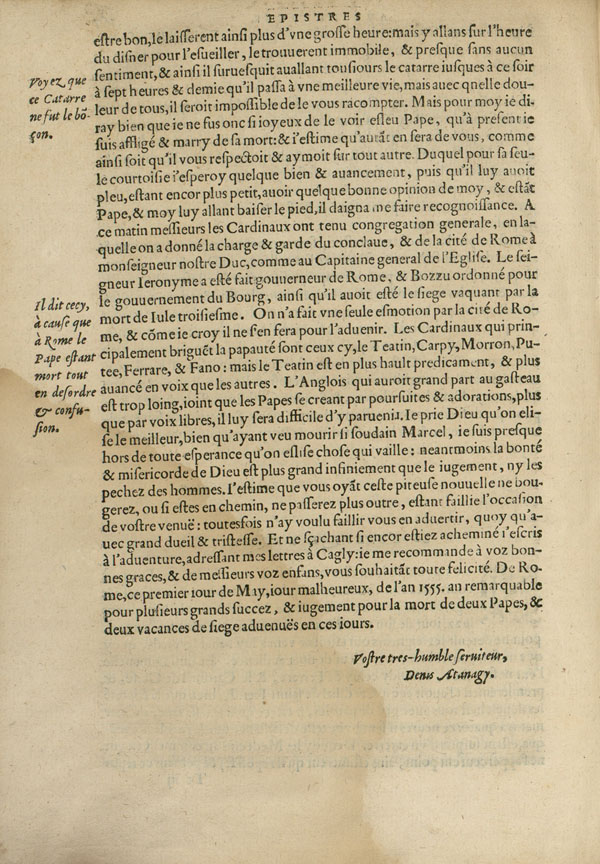 EPISTRES
estre bon, le laisserent ainsi plus d'vne grosse heure: mais y allans sur l'heure
du disner pour l'esueiller, le trouuerent immobile, & presque sans aucun
sentiment, & ainsi il suruesquit auallant tousiours le catarre iusques à ce soir
à sept heures & demie qu'il passa à vne meilleure vie, mais auec qnelle dou-
leur de tous, il seroit impossible de le vous racompter. Mais pour moy ie di-
ray bien que ie ne fus onc si ioyeux de le voir esleu Pape, qu'à present ie
suis affligé & marry de sa mort: & i'estime qu'autãt en sera de vous, comme
ainsi soit qu'il vous respectoit & aymoit sur tout autre. Duquel pour sa seu-
le courtoisie i'esperoy quelque bien & auancement, puis qu'il luy auoit
pleu, estant encor plus petit, auoir quelque bonne opinion de moy, & estãt
Pape, & moy luy allant baiser le pied, il daigna me faire recognoissance. A
ce matin messieurs les Cardinaux ont tenu congregation generale, en la-
quelle on a donné la charge & garde du conclaue, & de la cité de Rome à
monseigneur nostre Duc, comme au Capitaine general de l'Eglise. Le sei-
gneur Ieronyme a esté fait gouuerneur de Rome, & Bozzu ordonné pour
le gouuernement du Bourg, ainsi qu'il auoit esté le siege vaquant par la
mort de Iule troisiesme. On n'a fait vne seule esmotion par la cité de Ro-
me, & cõme ie croy il ne s'en fera pour l'aduenir. Les Cardinaux qui prin-
cipalement briguẽt la papauté sont ceux cy, le Teatin, Carpy, Morron, Pu-
tee, Ferrare, & Fano: mais le Teatin est en plus hault predicament, & plus
auancé en voix que les autres. L'Anglois qui auroit grand part au gasteau
est trop loing, ioint que les Papes se creant par poursuites & adorations, plus
que par voix libres, il luy sera difficile d'y paruenir. Ie prie Dieu qu'on eli-
se le meilleur, bien qu'ayant veu mourir si soudain Marcel, ie suis presque
hors de toute esperance qu'on eslise chose qui vaille: neantmoins la bonté
& misericorde de Dieu est plus grand infiniement que le iugement, ny les
pechez des hommes. I'estime que vous oyãt ceste piteuse nouuelle ne bou-
gerez, ou si estes en chemin, ne passerez plus outre, estant faillie l'occasion
de vostre venuë: toutesfois n'ay voulu faillir vous en aduertir, quoy qu'a-
uec grand dueil & tristesse. Et ne sçachant si encor estiez acheminé i'escris
à l'aduenture, adressant mes lettres à Cagly: ie me recommande à voz bon-
nes graces, & de messieurs voz enfans, vous souhaitãt toute felicité. De Ro-
me, ce premier iour de May, iour malheureux, de l'an 1555. an remarquable
pour plusieurs grands succez, & iugement pour la mort de deux Papes, &
deux vacances de siege aduenuës en ces iours.
Vostre tres-humble seruiteur,
Denis Atanagy.
Voyez que
ce Catarre
ne fut le bõ
çon.
Il dit cecy,
à cause que
à Rome le
Pape estant
mort tout
en desordre
& confu-
sion.